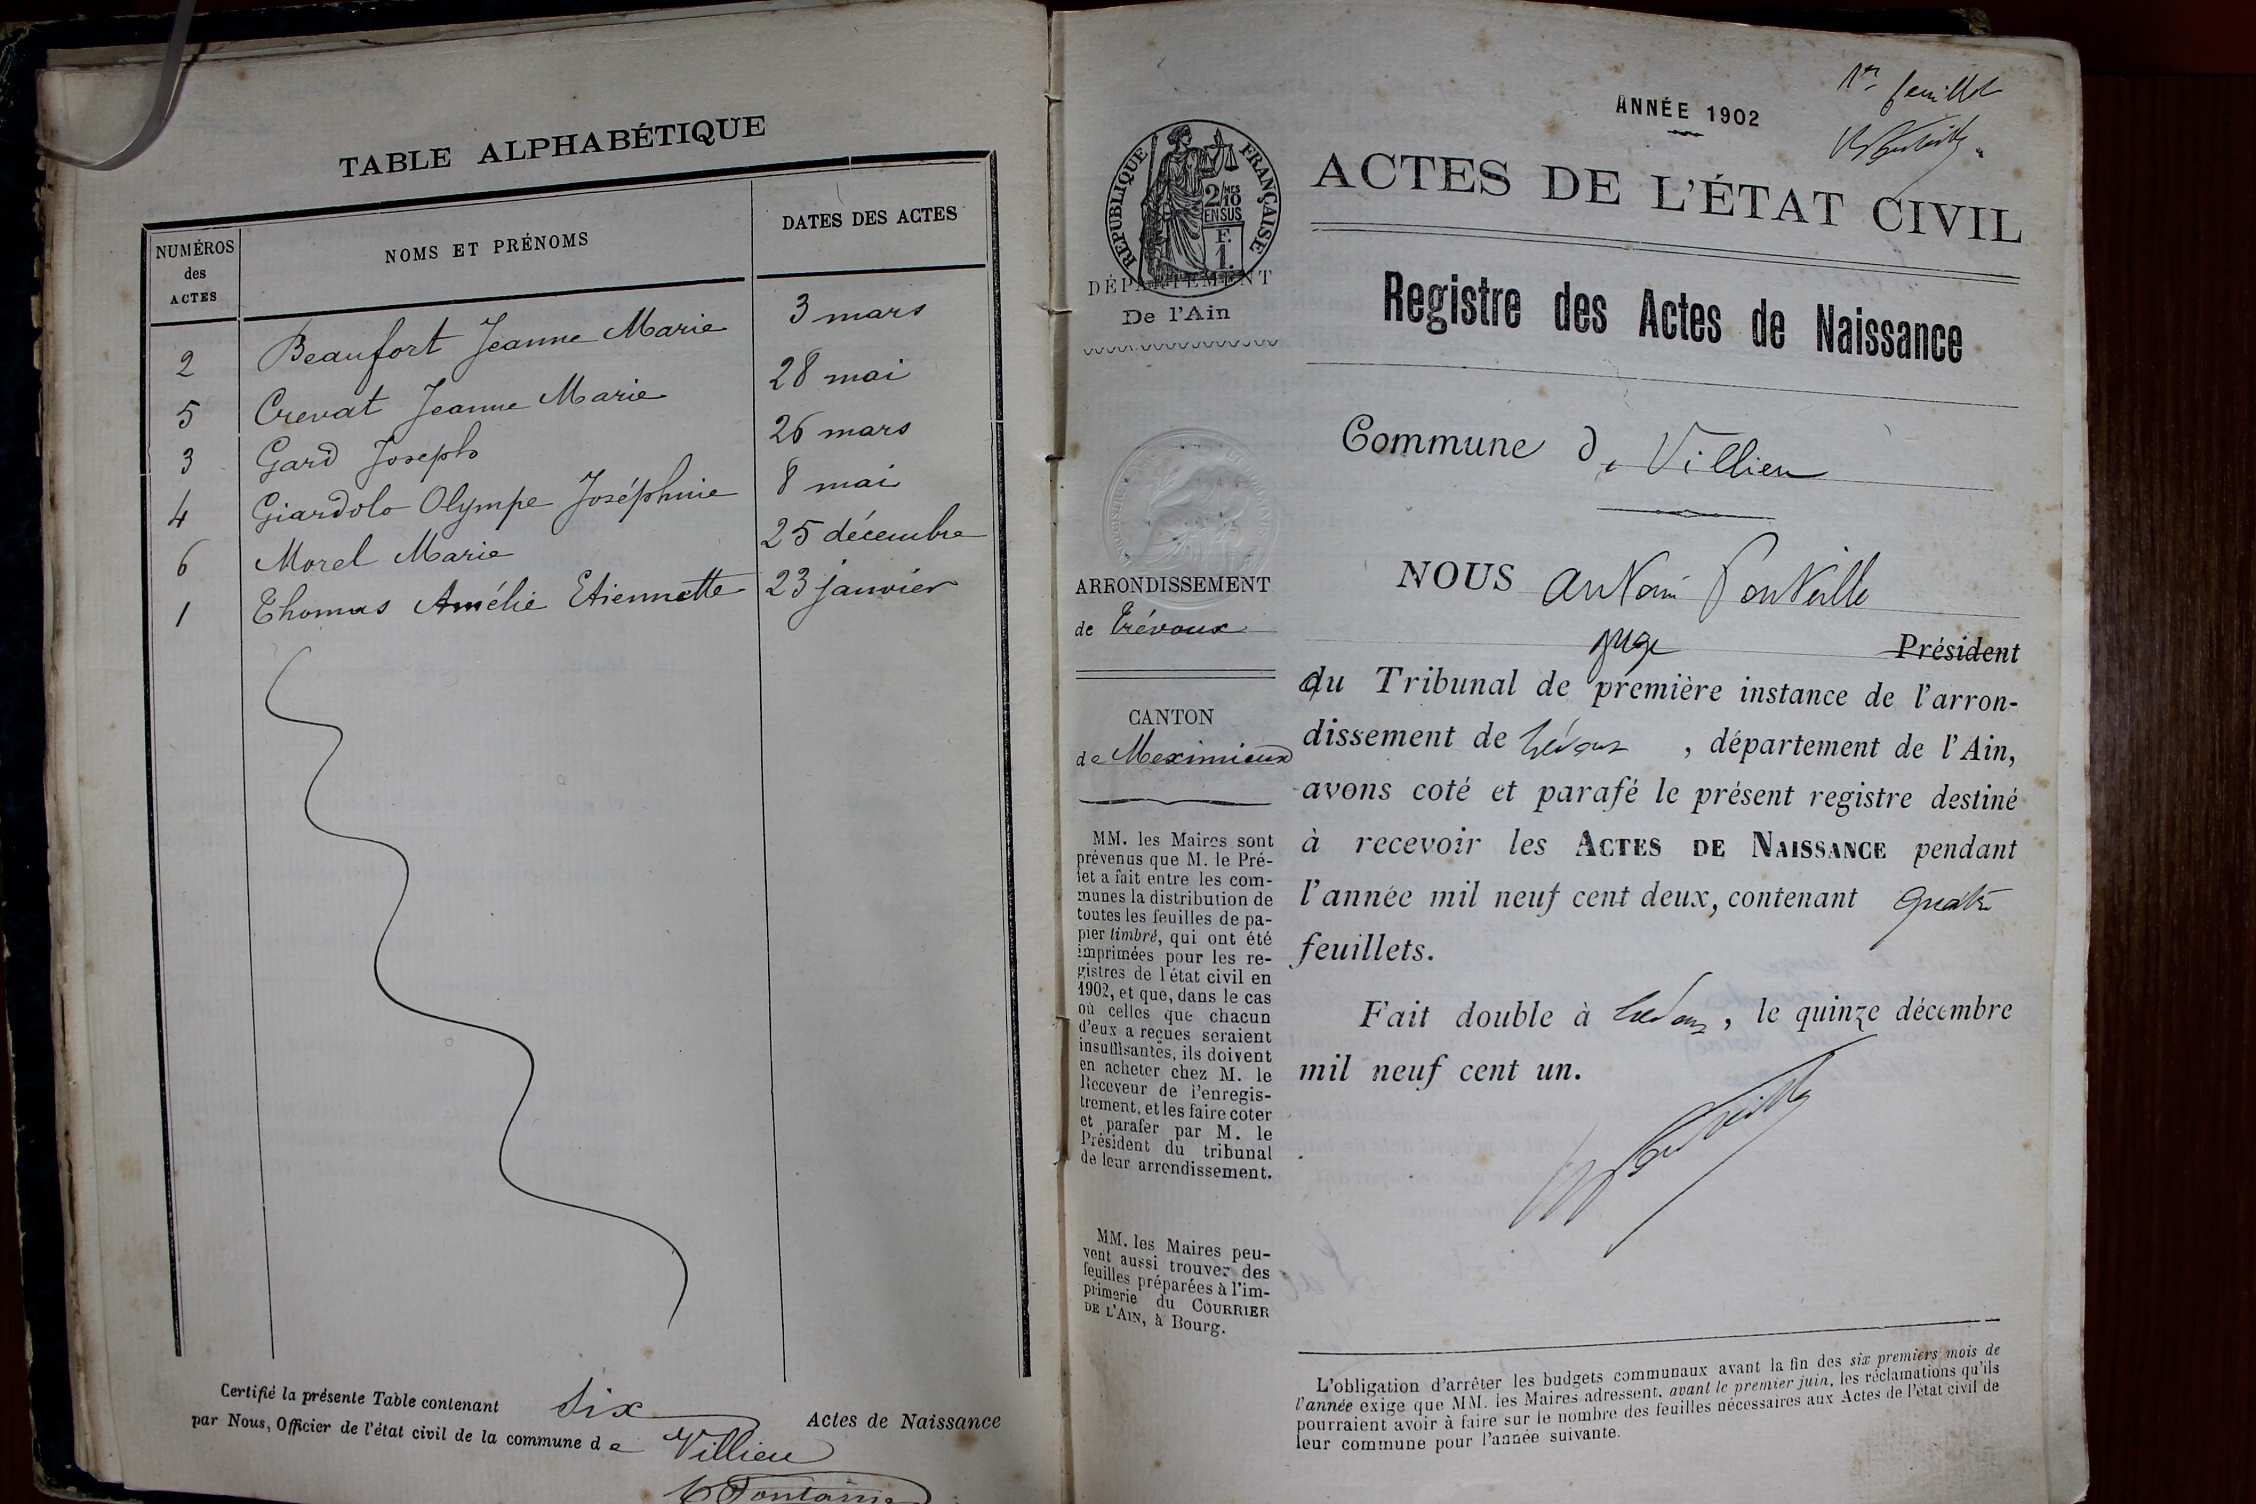 TABLE ALPHABÉTIQUE
NUMÉROS des ACTES
NOMS ET PRÉNOMS
DATES DES ACTES
2 Beaufort Jeanne Marie 3 mars
5 Crevat Jeanne Marie 28 mai
3 Gard Joseph 26 mars
4 Giardolo Olympe Joséphine 8 mai
6 Morel Marie 25 décembre
1 Thomas Amélie Etiennette 23 janvier
Certifié la présente Table contenant six Actes de Naissance
par Nous, Officier de l'état civil de la commune de Villieu
Fontaine
1er feuillet
ANNÉE 1902
RÉPUBLIQUE FRANÇAISE
2/10 MES
EN SUS
F.
1.
DÉPARTEMENT
De l'Ain
ARRONDISSEMENT
de Trévoux
CANTON
de Meximieux
MM. les Maires sont
prévenus que M. le Pré-
fet a fait entre les com-
munes la distribution de
toutes les feuilles de pa-
pier timbré, qui ont été
imprimées pour les re-
gistres de l'état civil en
1902, et que, dans le cas
où celles que chacun
d'eux a reçues seraient
insuffisantes, ils doivent
en acheter chez M. le
Receveur de l'enregis-
trement, et les faire coter
et parafer par M. le
Président du tribunal
de leur arrondissement.
MM. les Maires peu-
vent aussi trouver des
feuilles préparées à l'im-
primerie du COURRIER
DE L'AIN, à Bourg.
ACTES DE L'ÉTAT CIVIL
Registre des Actes de Naissance
Commune de Villieu
NOUS Antoine Ponteille
juge Président
du Tribunal de première instance de l'arron-
dissement de Trévoux, département de l'Ain,
avons coté et parafé le présent registre destiné
à recevoir les ACTES DE NAISSANCE pendant
l'année mil neuf cent deux, contenant quatre
feuillets.
Fait double à Trévoux, le quinze décembre
mil neuf cent un.
L'obligation d'arrêter les budgets communaux avant la fin des six premiers mois de
l'année exige que MM. les Maires adressent, avant le premier juin, les réclamations qu'ils
pourraient avoir à faire sur le nombre des feuilles nécessaires aux Actes de l'état civil de
leur commune pour l'année suivante.